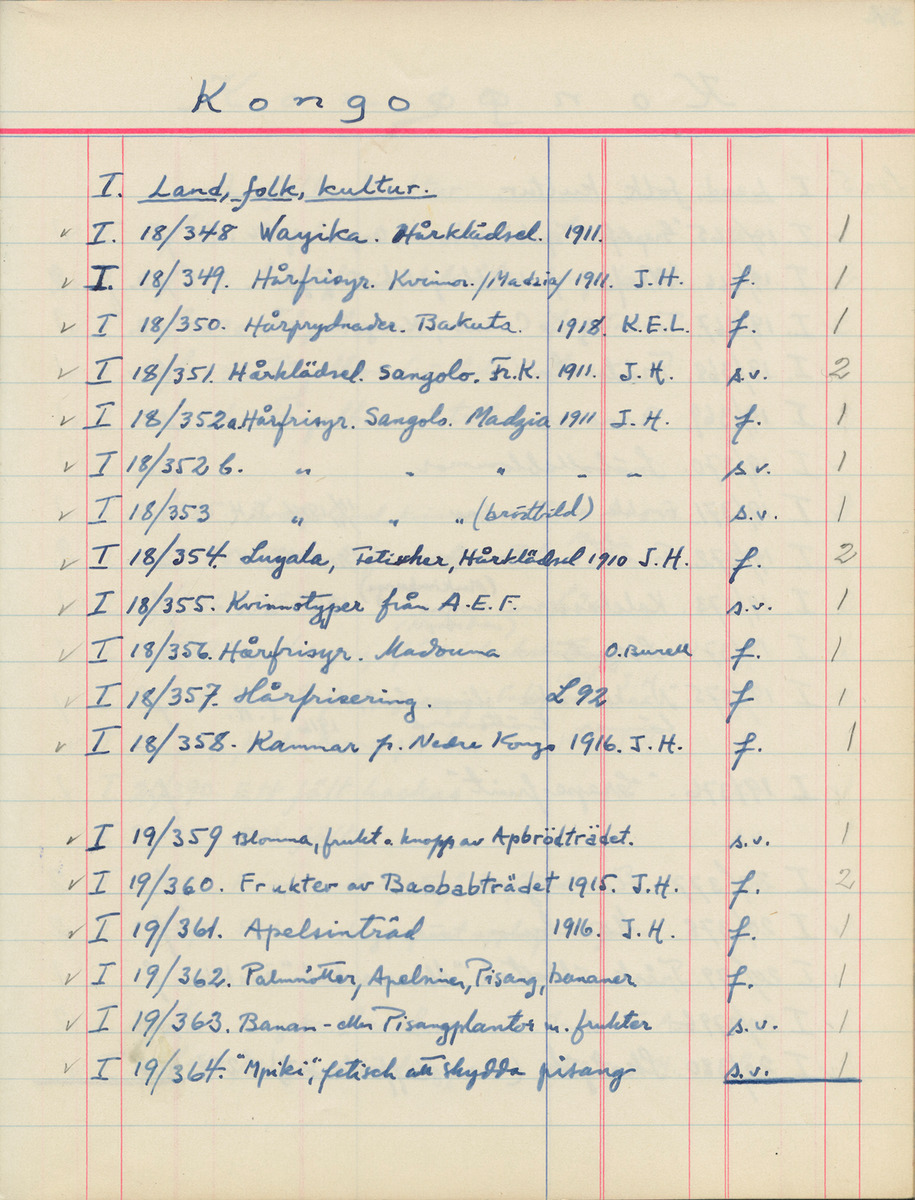 Kongo
I. Land, folk, kultur.
I. 18/348 Wayika. Hårklädsel. 1911. 1
I. 18/349. Hårfrisyr. Kvinnor. /Madzia/ 1911. J.H. f. 1
I 18/350. Hårprydnader. Bakuta. 1918. K.E.L. f. 1
I 18/351. Hårklädsel. Sangolo. Fr.K. 1911. J.H. s.v. 2
I 18/352a. Hårfrisyr. Sangolo. Madzia 1911 J.H. f. 1
I 18/352 b. " " " " " s.v. 1
I 18/353 " " " (bröstbild) s.v. 1
I 18/354. Luyala, Fetischer, Hårklädsel 1910 J.H. f. 2
I 18/355. Kvinnotyper från A.E.F. s.v. 1
I 18/356. Hårfrisyr. Madouma O. Burell f. 1
I 18/357. Hårfrisering. L 92 f 1
I 18/358. Kammar fr. Nedre Kongo 1916. J.H. f. 1
I 19/359 Blomma, frukt o. knopp av Apbrödträdet. s.v. 1
I 19/360. Frukter av Baobabträdet 1915. J.H. f. 2
I 19/361. Apelsinträd 1916. J.H. f. 1
I 19/362. Palmnötter, Apelsiner, Pisang, bananer f. 1
I 19/363. Banan- eller Pisangplantor m. frukter s.v. 1
I 19/364. "Mpiki", fetisch att skydda pisang s.v. 1